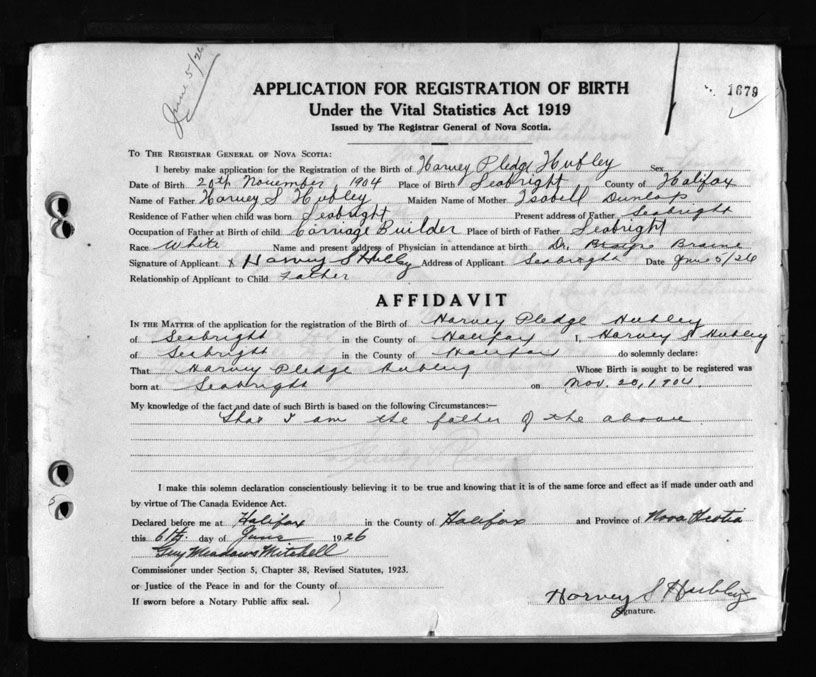 June 5/26
1679
APPLICATION FOR REGISTRATION OF BIRTH
Under the Vital Statistics Act 1919
Issued by The Registrar General of Nova Scotia.
To The Registrar General of Nova Scotia:
I hereby make application for the Registration of the Birth of Harvey Pledge Hubley Sex
Date of Birth 20th November, 1904 Place of Birth Seabright County of Halifax
Name of Father Harvey S Hubley Maiden Name of Mother Isobell Dunlop
Residence of Father when child was born Seabright Present address of Father Seabright
Occupation of Father at Birth of child Carriage Builder Place of birth of Father Seabright
Race White Name and present address of Physician in attendance at birth Dr. Braine
Signature of Applicant x Harvey S Hubley Address of Applicant Seabright Date June 5/26
Relationship of Applicant to Child Father
AFFIDAVIT
In the Matter of the application for the registration of the Birth of Harvey Pledge Hubley
of Seabright in the County of Halifax I, Harvey S Hubley
of Seabright in the County of Halifax do solemnly declare:
That Harvey Pledge Hubley Whose Birth is sought to be registered was
born at Seabright on Nov. 20, 1904.
My knowledge of the fact and date of such Birth is based on the following Circumstances:—
That I am the father of the above
I make this solemn declaration conscientiously believing it to be true and knowing that it is of the same force and effect as if made under oath and
by virtue of The Canada Evidence Act.
Declared before me at Halifax in the County of Halifax and Province of Nova Scotia
this 6th day of June 1926
Guy Meadows Mitchell
Commissioner under Section 5, Chapter 38, Revised Statutes, 1923.
or Justice of the Peace in and for the County of
If sworn before a Notary Public affix seal.
Harvey S Hubley
Signature.